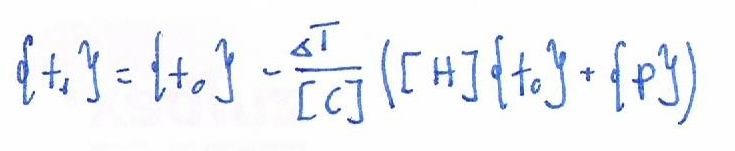 {t₁} = {t₀} - ΔT/[C] ([H]{t₀} + {P})